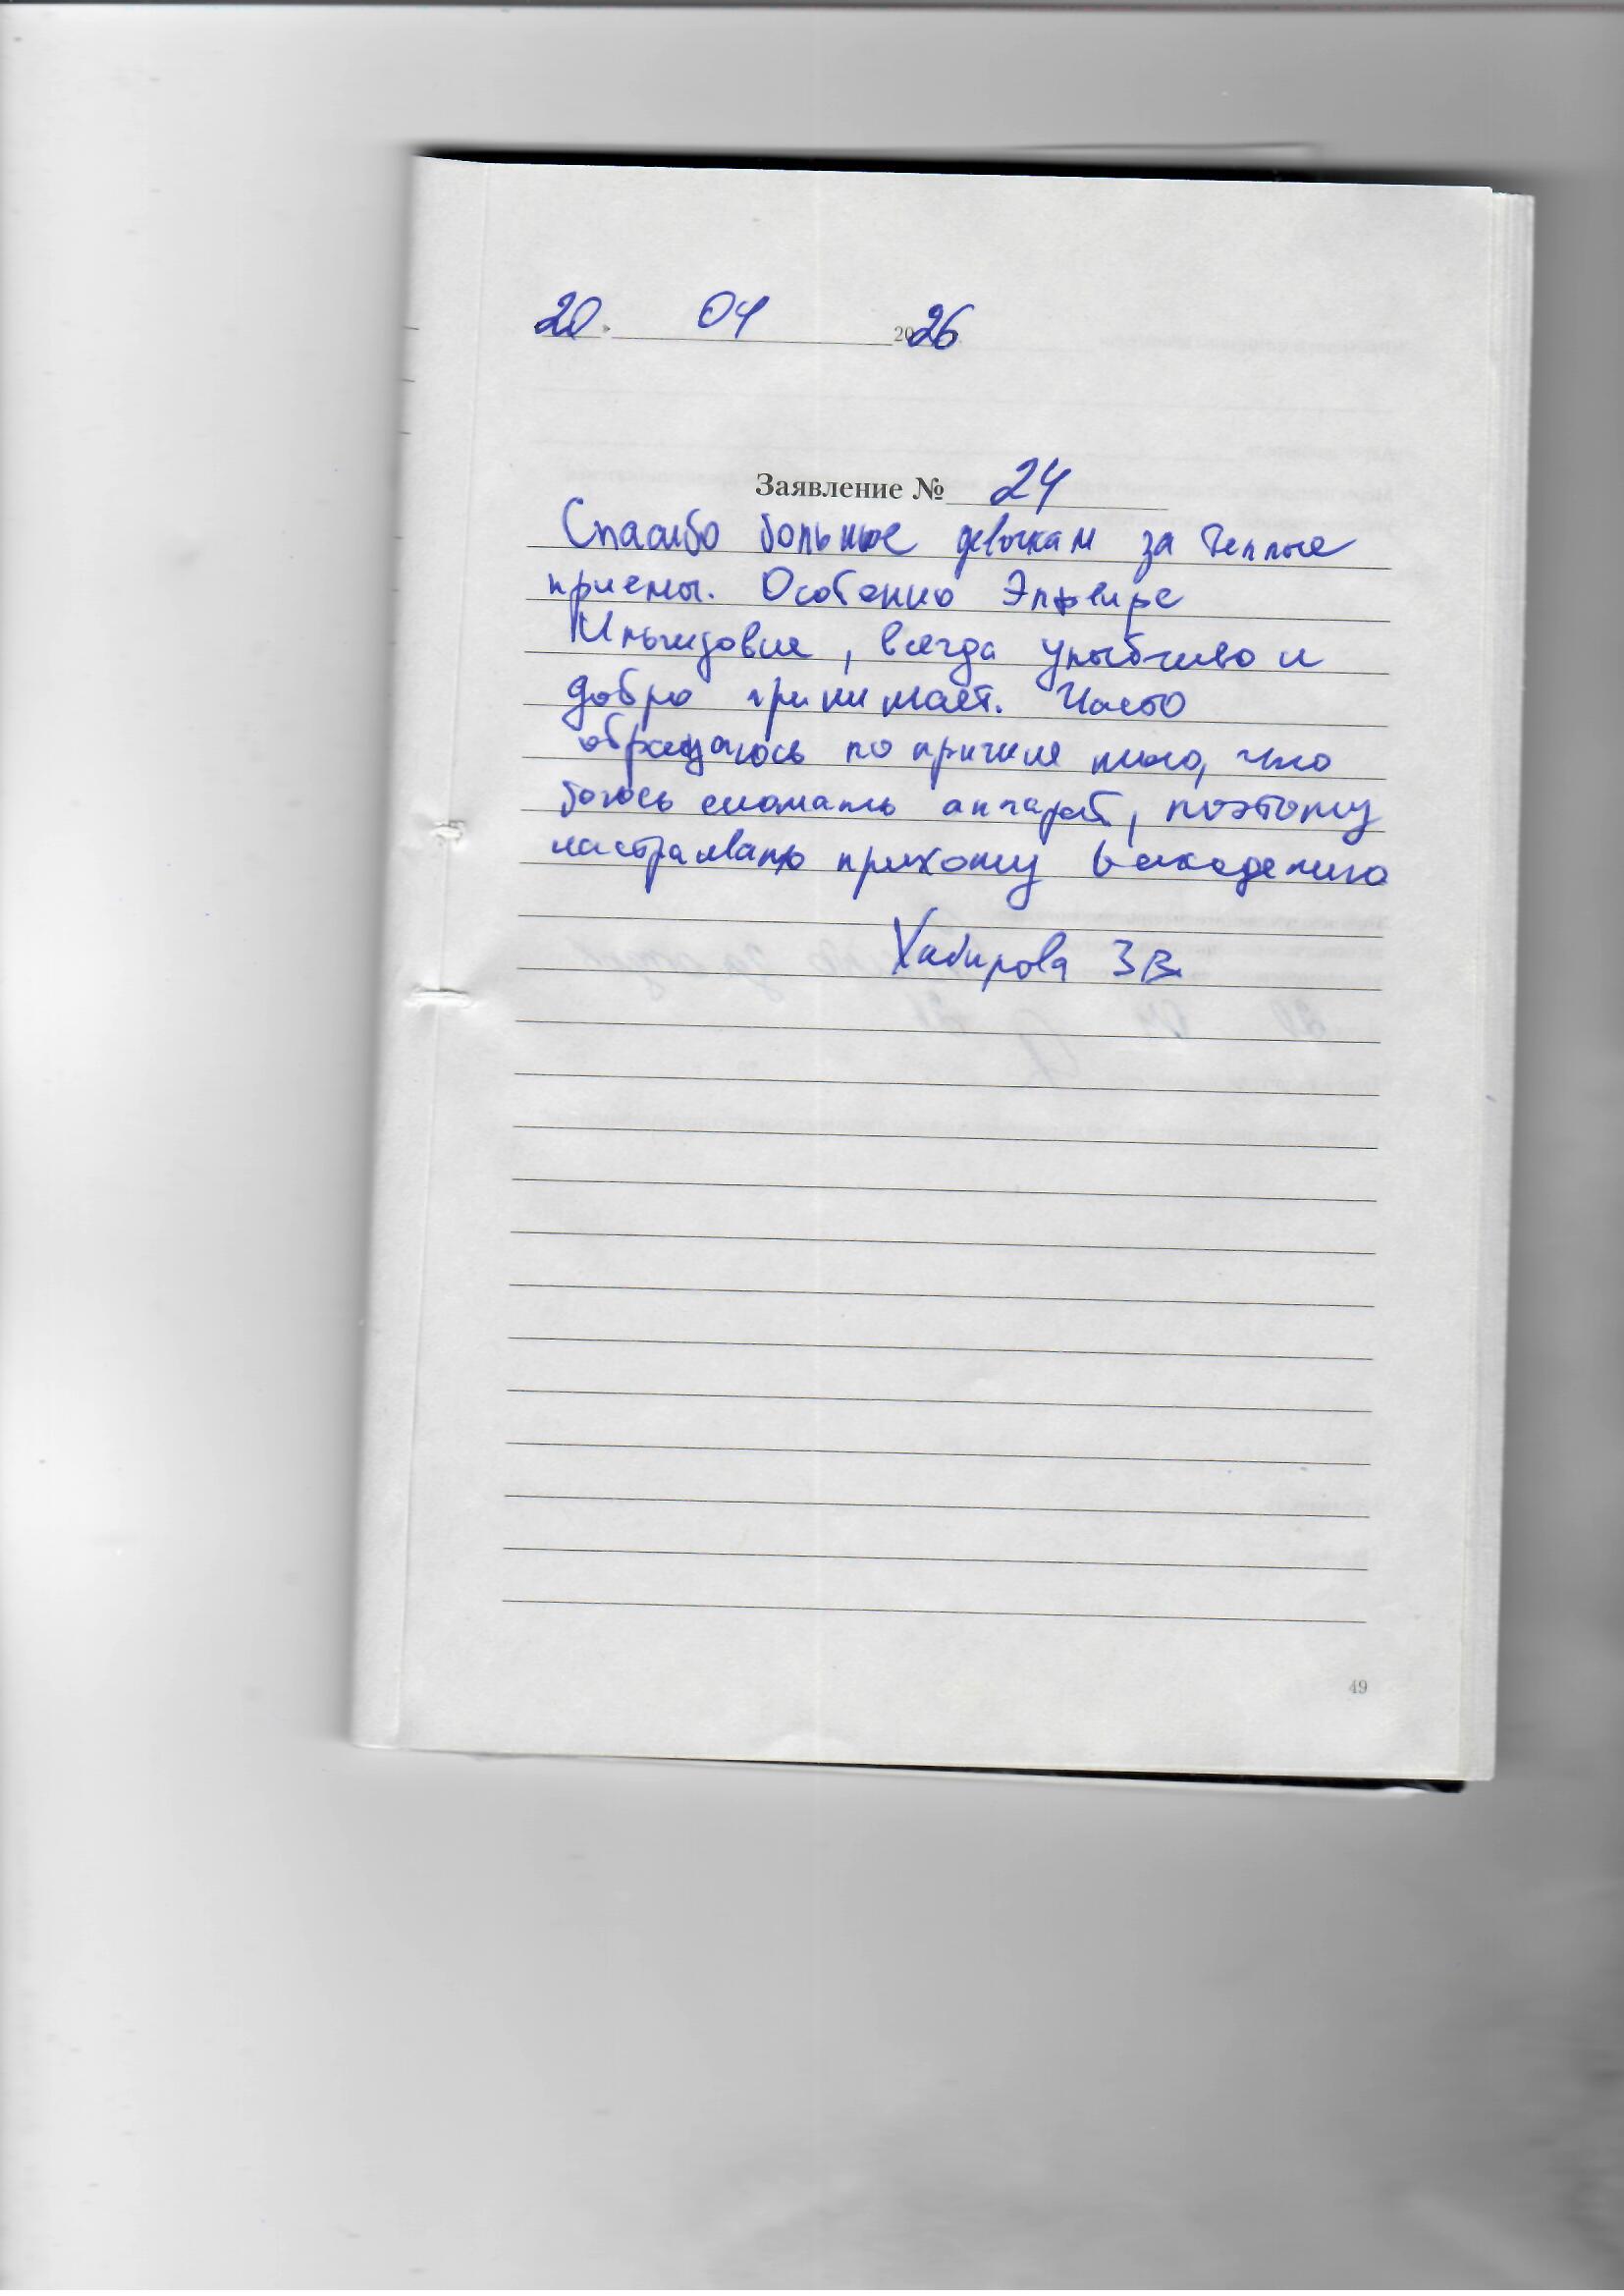 20. 04 2026
Заявление № 24
Спасибо большое девочкам за теплые
приемы. Особенно Эльвире
всегда улыбчиво и
добро принимает. Часто
обращаюсь по причине того, что
боюсь сломать аппарат, поэтому
настраивать прихожу в академию
Хабирова З В.
49